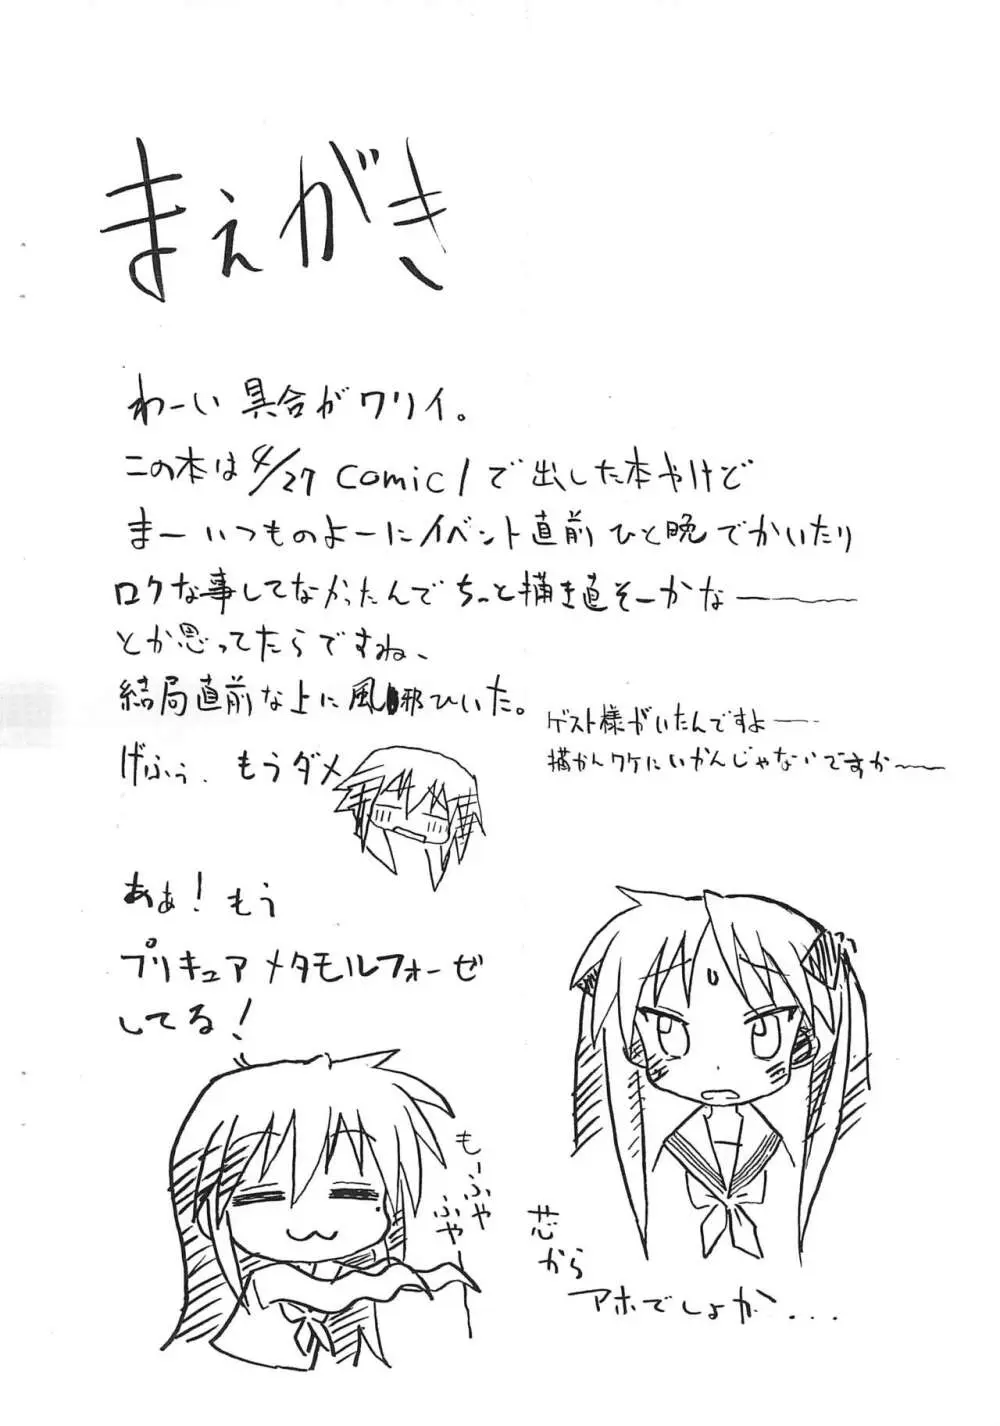 まえがき
わーい 具合がワリイ。
この本は4/27 comic1で出した本やけど
まーいつものよーにイベント直前ひと晩でかいたり
ロクな事してなかったんでちっと描き直そーかなー
とか思ってたらですね、
結局直前な上に風邪ひいた。
げふぅ、もうダメ
ゲスト様がいたんですよー
描かんワケにいかんじゃないですかー
あぁ!もう
プリキュアメタモルフォーゼ
してる!
もーふゃ
ふゃー
芯から
アホでしょか...